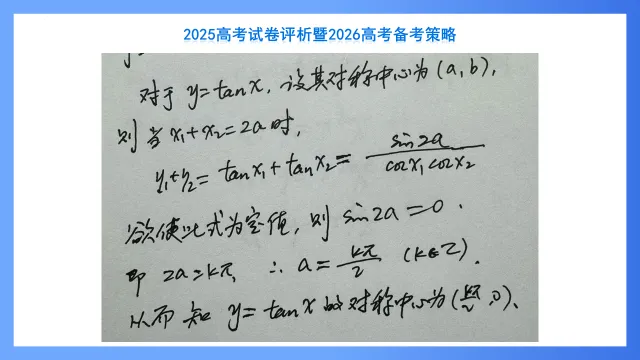 2025高考试卷评析暨2026高考备考策略
对于 y=tanx, 设其对称中心为 (a, b),
则当 x₁+x₂=2a 时,
y₁+y₂= tanx₁+tanx₂= sin2a / cosx₁cosx₂
欲使此式为定值, 则 sin2a=0.
即 2a=kπ, ∴ a= kπ/2 (k∈Z).
从而知 y=tanx 的对称中心为 (kπ/2, 0).